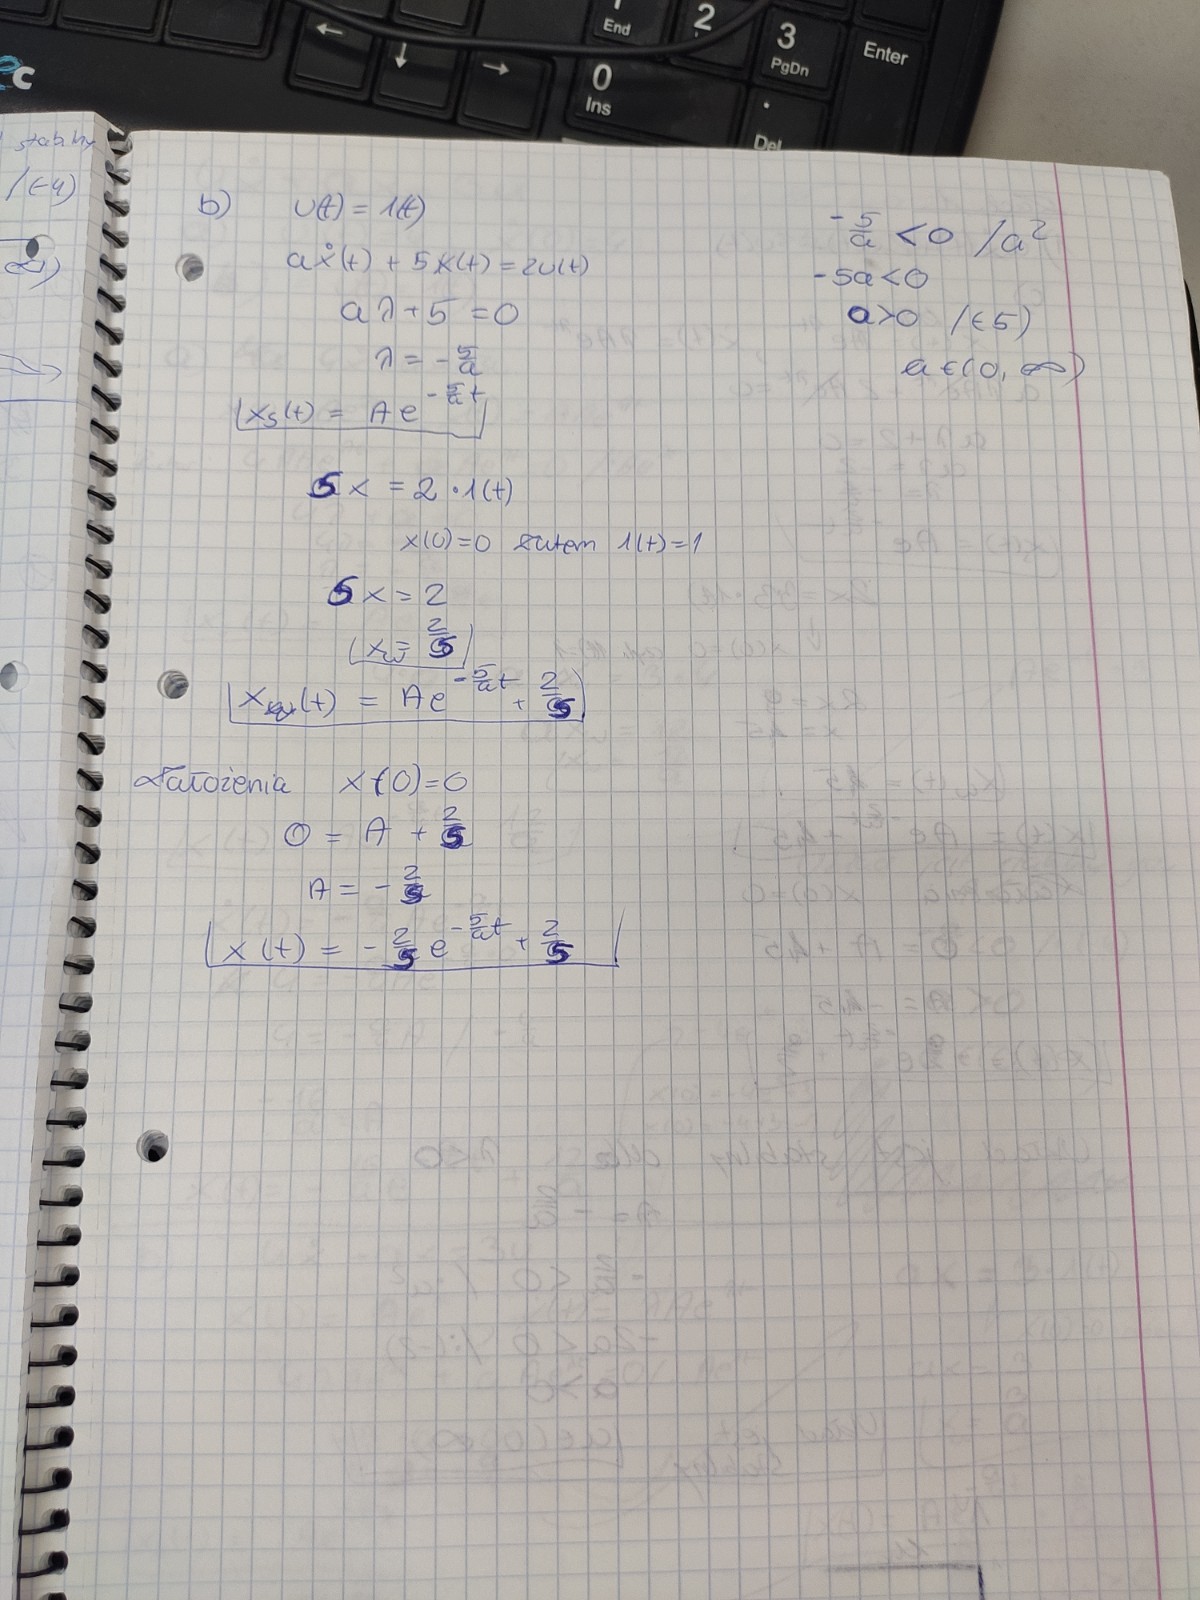 ←
↓
→
End
2
3
PgDn
Enter
0
Ins
.
Del
C
stabilny
/(-4)
b) u(t) = 1(t)
aẋ(t) + 5x(t) = 2u(t)
aλ + 5 = 0
λ = -5/a
xs(t) = Ae^(-5/a t)
5x = 2 · 1(t)
x(0)=0 zatem 1(t)=1
5x = 2
xw = 2/5
(t) = Ae^(-5/a t) + 2/5
Założenia x(0)=0
0 = A + 2/5
A = -2/5
x(t) = -2/5 e^(-5/a t) + 2/5
-5/a < 0 /a²
-5a < 0
a > 0 /(-5)
a ∈ (0, ∞)